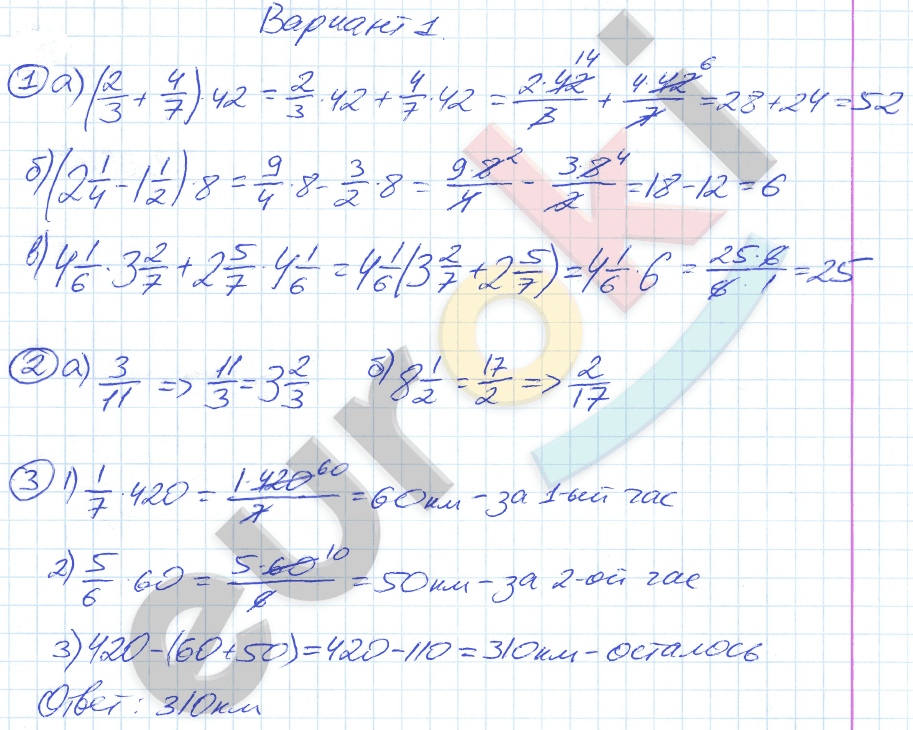 Вариант 1.
1 а) (2/3 + 4/7) · 42 = 2/3 · 42 + 4/7 · 42 = 2·42 14/3 + 4·42 6/7 = 28 + 24 = 52
б) (2 1/4 - 1 1/2) · 8 = 9/4 · 8 - 3/2 · 8 = 9·8 2/4 - 3·8 4/2 = 18 - 12 = 6
в) 4 1/6 · 3 2/7 + 2 5/7 · 4 1/6 = 4 1/6 (3 2/7 + 2 5/7) = 4 1/6 · 6 = 25·6/6·1 = 25
2 а) 3/11 => 11/3 = 3 2/3 б) 8 1/2 = 17/2 => 2/17
3 1) 1/7 · 420 = 1·420 60/7 = 60 км - за 1-ый час
2) 5/6 · 60 = 5·60 10/6 = 50 км - за 2-ой час
3) 420 - (60 + 50) = 420 - 110 = 310 км - осталось
Ответ: 310 км
euroki